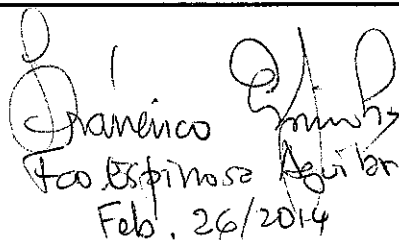 Francisco Espinosa
Fco Espinosa Aguilar
Feb. 26/2014